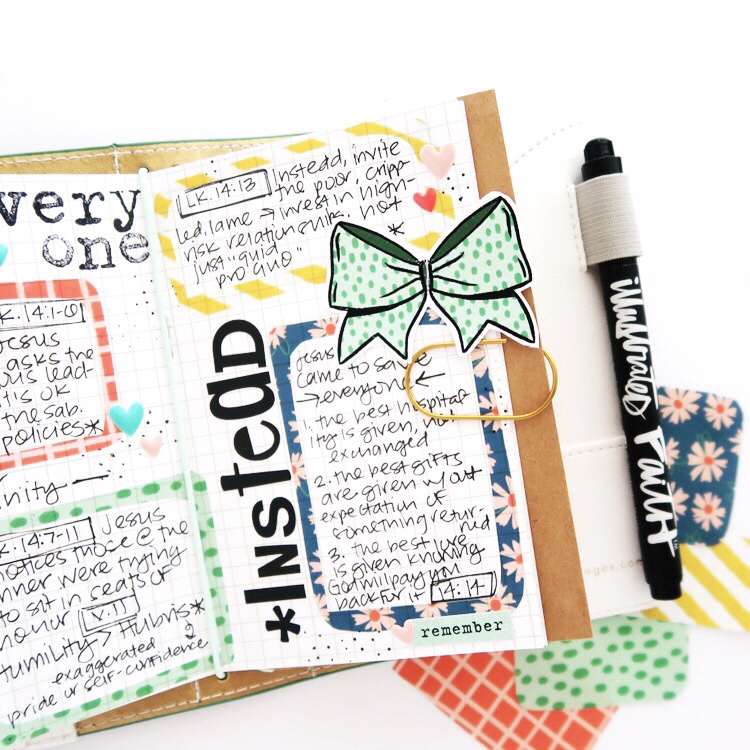 very
one
K. 14:1-6
Jesus
asks the
ous lead-
t is ok
the sab.
policies*
nity —
K. 14:7-11 Jesus
notices those @ the
nner were trying
to sit in seats of
honor V.11
Humility > Hubris*
exaggerated
pride or self-confidence
LK. 14:13 Instead, invite
the poor, cripp-
led, lame → invest in high-
risk relationships, not
just "quid *
pro quo"
*INSteaD
Jesus
came to save
→ everyone ←
1. the best hospital-
ity is given, not
exchanged
2. the best gifts
are given w/out
expectation of
something retur-
ned
3. the best love
is given knowing
God will pay um
back for it 14:14
remember
illustrated Faith
ages.com